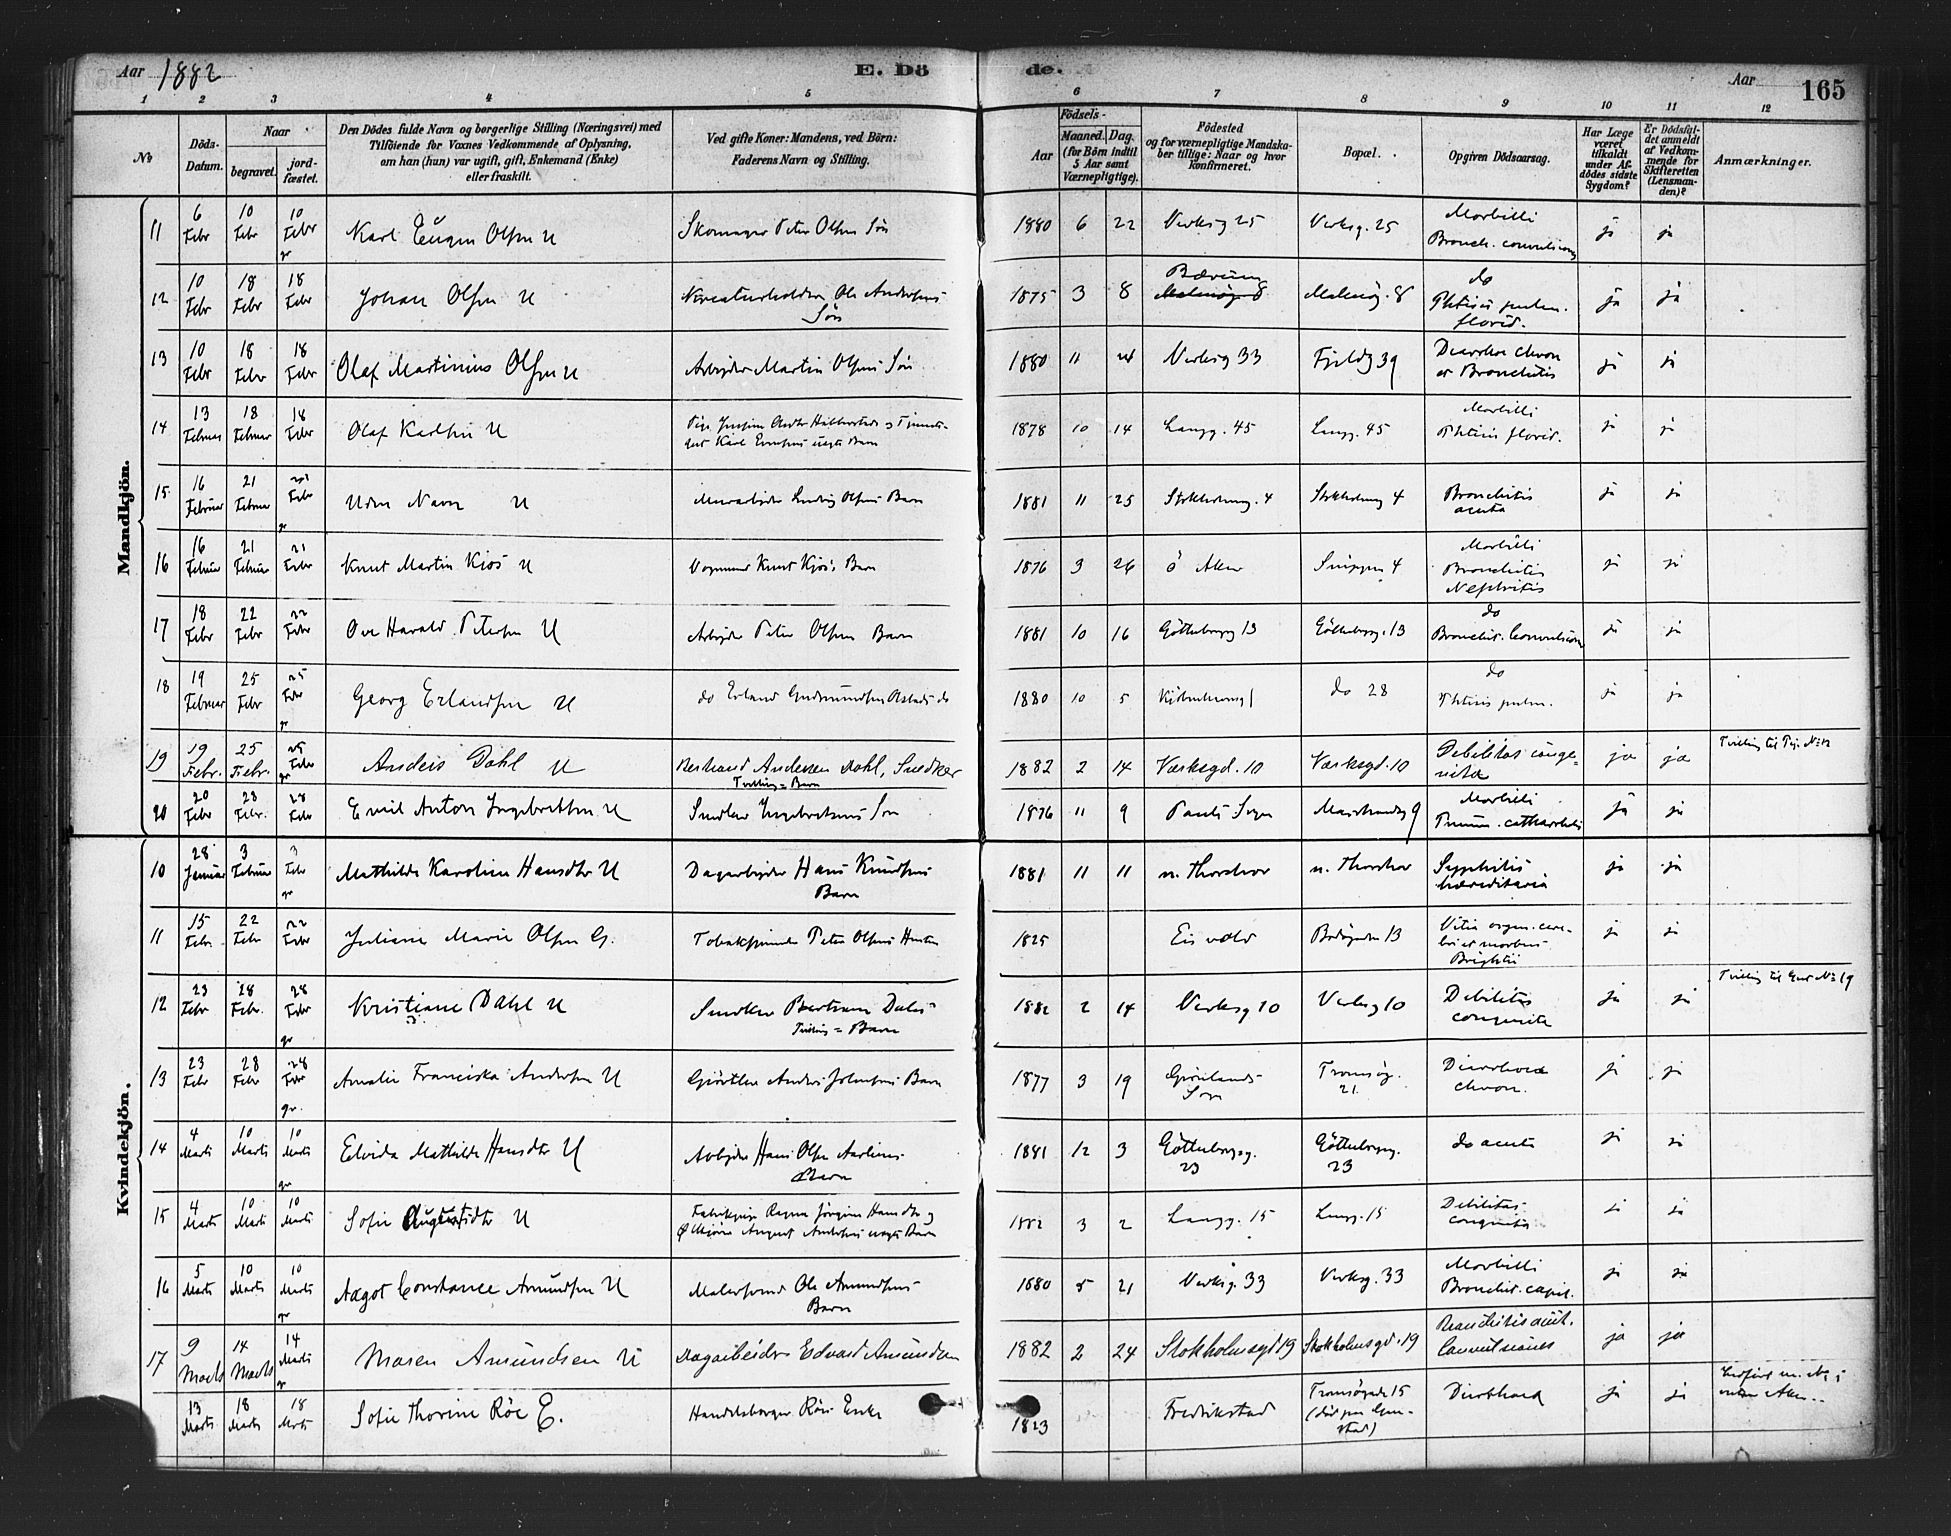 Aar 1882
E. Dö
de.
Aar
165
1 2 3 4 5 6 7 8 9 10 11 12
No
Döds-Datum.
Naar
begravet.
jord-fæstet.
Den Dödes fulde Navn og borgerlige Stilling (Næringsvei) med
Tilföiende for Voxnes Vedkommende af Oplysning,
om han (hun) var ugift, gift, Enkemand (Enke)
eller fraskilt.
Ved gifte Koner: Mandens, ved Börn:
Faderens Navn og Stilling.
Födsels-
Aar
Maaned. Dag.
(for Börn indtil
5 Aar samt
Værnepligtige).
Födested
og for værnepligtige Mandska-
ber tillige: Naar og hvor
konfirmeret.
Bopæl.
Opgiven Dödsaarsag.
Har Læge
været
tilkaldt
under Af-
dödes sidste
Sygdom?
Er Dödsfal-
det anmeldt
af Vedkom-
mende for
Skifteretten
(Lensman-
den)?
Anmærkninger.
Mandkjön.
11 6 Febr 10 Febr 10 Febr Karl Eugen Olsen U Skomager Peter Olsens Søn 1880 6 22 Verksg 25 Verksg. 25 Morbilli Bronch. convulsiones ja ja
12 10 Febr 18 Febr 18 Febr Johan Olsen U Kreaturholder Ole Andersens Søn 1875 3 8 Bærum Malmøg. 8 do Phtisis pulm. florid. ja ja
13 10 Febr 18 Febr 18 Febr Olaf Martinius Olsen U Arbejder Martin Olsens Søn 1880 11 24 Verksg 33 Fjeldg 39 Diarrhoe chron et Bronchitis ja ja
14 13 Februar 18 Februar 18 Febr Olaf Karlsen U Karl uægte Barn 1878 10 14 Langg. 45 Langg. 45 Morbilli Phtisis florid. ja ja
15 16 Februar 21 Februar 21 Febr Uden Navn U Murarbejder Ludvig Olsens Barn 1881 11 25 Stokholmsg. 4 Stokholmsg 4 Bronchitis acuta ja ja
16 16 Februar 21 Februar 21 Febr Knut Martin Kjos U Vognmand Knut Kjos's Barn 1876 3 26 ö Aker 4 Morbilli Bronchitis Nephritis ja ja
17 18 Febr 22 Febr 22 Febr Ove Harald Petersen U Arbejder Peter Olsens Barn 1881 10 16 Götteborgg 13 Götteborgg. 13 do Bronchit. Convulsiones ja ja
18 19 Februar 25 Febr 25 Febr Georg Erlandsen U do Erland Gudmundsen do 1880 10 5 do 28 do Phtisis pulm. ja ja
19 19 Febr. 25 Febr. 25 Febr Anders Dahl U Bertrand Andersen Dahl, Snedker Tvilling-Barn 1882 2 14 Værksgd. 10 Værksgd. 10 Debilitas congenita ja ja Tvilling til Pige No 12
20 20 Febr 28 Febr. 28 Febr Emil Anton Ingebretsen U Snedker Ingebretsens Søn 1876 11 9 Pauls Sogn 9 Morbilli Pneum. catharrhalis ja ja
Kvindekjön.
10 28 Januar 3 Februar 3 Febr Mathilde Karoline Hansdtr U Dagarbejder Hans Knudsens Barn 1881 11 11 n. Thorshov n. Thorshov Syphilis hæreditaria ja ja
11 15 Febr. 22 Febr 22 Febr Juliane Marie Olsen G. Tobakspinder Peter Olsens Hustru 1825 Eidsvold 13 Vitia organ. cordis et morbus Brightii ja ja
12 23 Febr 28 Febr. 28 Febr Kristiane Dahl U Snedker Bertram Dahls Tvilling-Barn 1882 2 14 Verksg 10 Verksg 10 Debilitas congenita ja ja Tvilling til Gut No 19
13 23 Febr 28 Febr 28 Febr Amalie Franciska Andersen U Gjørtler Anders Johnsens Barn 1877 3 19 Grønlands Sogn Tromsøg. 21 Diarrhoea chron. ja ja
14 4 Marts 10 Marts 10 Marts Elvida Mathilde Hansdtr U Arbejder Hans Olsen Barn 1881 12 3 Götteborgsg. 23 Götteborgsg. 23 do acuta ja ja
15 4 Marts 10 Marts 10 Marts Sofie Augustsdtr U August Andersens uægte Barn 1882 3 2 Langg. 15 Langg. 15 Debilitas congenita ja ja
16 5 Marts 10 Marts 10 Marts Aagot Constance Amundsen U Malersvend Ole Amundsens Barn 1880 5 21 Verksg. 33 Verksg. 33 Morbilli Bronchit. capil. ja ja
17 9 Marts 14 Marts 14 Marts Maren Amundsen U Dagarbeider Edvard Amundsen 1882 2 24 Stokholmsgd 19 Stokholmsgd. 19 Bronchitis acut. Convulsiones ja ja
13 Marts 18 Marts 18 Marts Sofie Thorine Röe E. Handelsborger Röes Enke 1823 Fredrikstad Tromsøgade 15 Diarrhoea ja ja